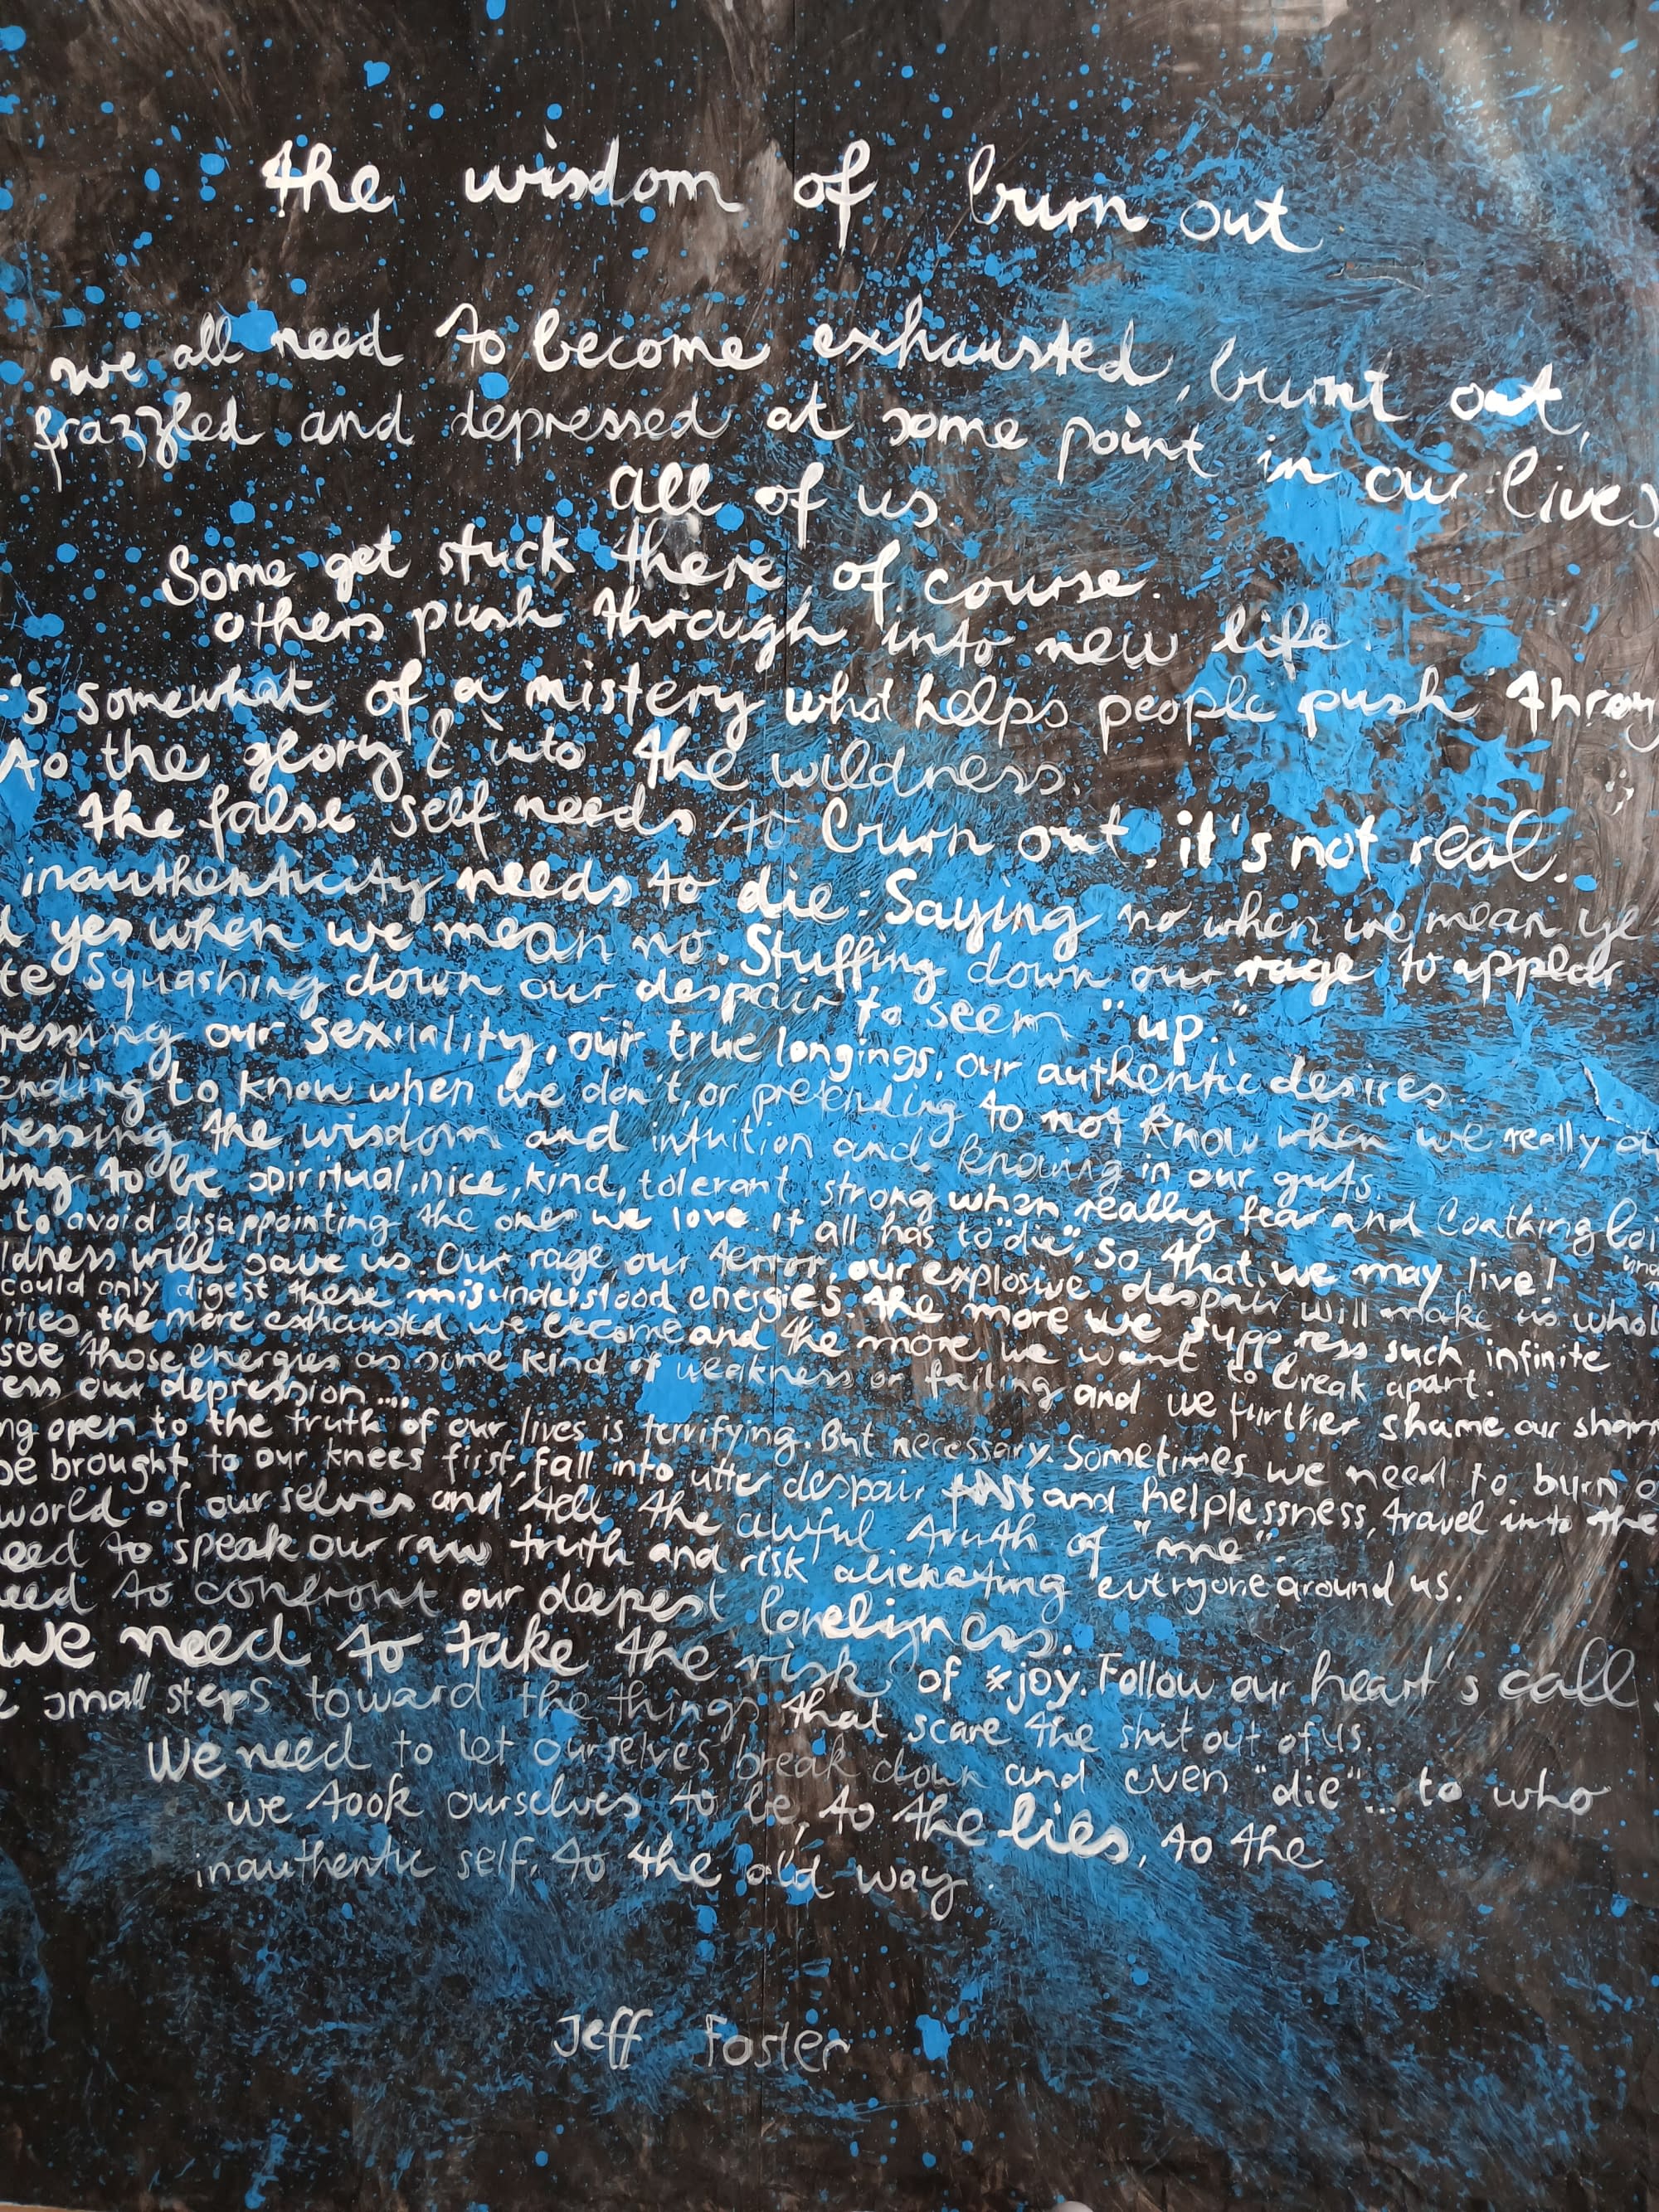 the wisdom of burn out
we all need to become exhausted, burnt out,
frazzled and depressed at some point in our lives
all of us
Some get stuck there, of course.
others push through into new life.
's somewhat of a mistery what helps people push throug
to the glory & into the wildness.
the false self needs to burn out, it's not real.
inauthenticity needs to die. Saying no when we mean ye
d yes when we mean no. Stuffing down our rage to appear
te squashing down our despair to seem "up."
ressing our sexuality, our true longings, our authentic desires.
ending to know when we don't, or pretending to not know when we really d
ressing the wisdom and intuition and knowing in our guts.
ling to be spiritual, nice, kind, tolerant strong when really fear and loathing boi
to avoid disappointing the ones we love it all has to "die", so that we may live!
ldness will save us. Our rage our terror, our explosive despair will make us whol
could only digest these misunderstood energies. the more we suppress such infinite
ities, the more exhausted we become and the more we want to break apart.
see those energies as some kind of weakness or failing and we further shame our sham
ess our depression....
ng open to the truth of our lives is terrifying. But necessary. Sometimes we need to burn o
be brought to our knees first, fall into utter despair and helplessness, travel into the
world of ourselves and tell the awful truth of "me".
eed to speak our raw truth and risk alienating everyone around us.
eed to confront our deepest loneliness.
we need to take the risk of *joy. Follow our heart's call.
e small steps toward the things that scare the shit out of us.
We need to let ourselves break down and even "die"... to who
we took ourselves to be, to the lies, to the
inauthentic self, to the old way.
Jeff Foster